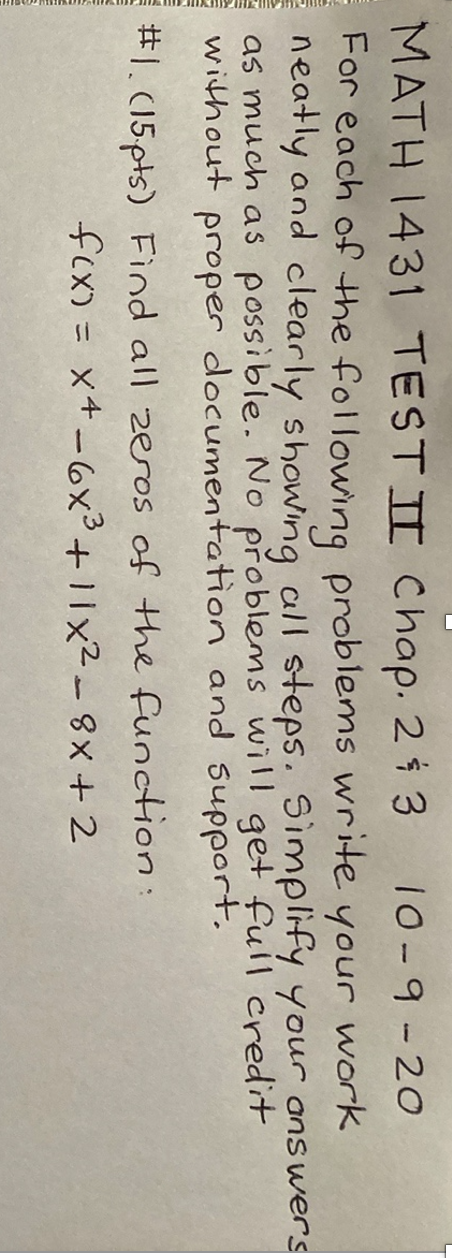 MATH 1431 TEST II Chap. 2 & 3 10-9-20
For each of the following problems write your work
neatly and clearly showing all steps. Simplify your answers
as much as possible. No problems will get full credit
without proper documentation and support.
#1. (15pts) Find all zeros of the function:
f(x) = x⁴ - 6x³ + 11x² - 8x + 2